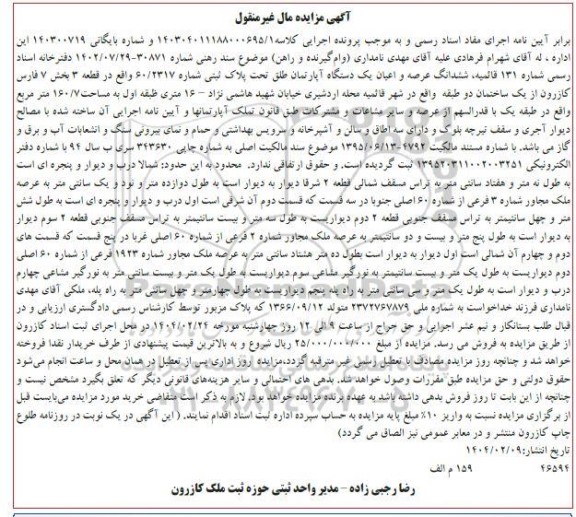 آگهی مزایده مال غیرمنقول
برابر آیین نامه اجرای مفاد اسناد رسمی و به موجب پرونده اجرایی کلاسه ۱۴۰۳۰۴۰۱۱۱۸۸۰۰۰۶۹۵/۱ و شماره بایگانی ۱۴۰۳۰۰۷۱۹ این
اداره ، له آقای شهرام فرهادی علیه آقای مهدی نامداری (وام‌گیرنده و راهن) موضوع سند رهنی شماره ۳۰۸۷۱-۱۴۰۲/۰۷/۲۹ دفترخانه اسناد
رسمی شماره ۱۳۱ قائمیه، ششدانگ عرصه و اعیان یک دستگاه آپارتمان طلق تحت پلاک ثبتی شماره ۶۰/۲۳۱۷ واقع در قطعه ۳ بخش ۷ فارس
کازرون از یک ساختمان دو طبقه واقع در شهر قائمیه محله اردشیری خیابان شهید هاشمی نژاد – ۱۶ متری طبقه اول به مساحت ۱۶۰/۷ متر مربع
واقع در طبقه یک با قدرالسهم از عرصه و سایر مشاعات و مشترکات طبق قانون تملک آپارتمانها و آیین نامه اجرایی آن ساخته شده با مصالح
دیوار آجری و سقف تیرچه بلوک و دارای سه اطاق و سالن و آشپرخانه و سرویس بهداشتی و حمام و نمای بیرونی سنگ و انشعابات آب و برق و
گاز می باشد. با شماره مستند مالکیت ۴۷۹۲-۱۳۹۵/۰۶/۱۳ موضوع سند مالکیت اصلی به شماره چاپی ۳۴۳۶۳۰ سری ب سال ۹۴ با شماره دفتر
الکترونیکی ۱۳۹۵۲۰۳۱۱۰۰۲۰۰۳۲۵۱ ثبت گردیده است. و حقوق ارتفاقی ندارد. محدود به این حدود: شمالا درب و دیوار و پنجره ای است
به طول نه متر و هفتاد سانتی متر به تراس مسقف شمالی قطعه ۲ شرقا دیوار به دیوار است به طول دوازده متر و نود و یک سانتی متر به عرصه
ملک مجاور شماره ۳ فرعی از شماره ۶۰ اصلی جنوبا در سه قسمت که قسمت دوم آن شرقی است اول درب و دیوار و پنجره ای است به طول شش
متر و چهل سانتیمتر به تراس مسقف جنوبی قطعه ۲ دوم دیواریست به طول سه متر و بیست سانتیمتر به تراس مسقف جنوبی قطعه ۲ سوم دیوار
به دیوار است به طول پنج متر و بیست و دو سانتیمتر به عرصه ملک مجاور شماره ۲ فرعی از شماره ۶۰ اصلی غربا در پنج قسمت که قسمت های
دوم و چهارم آن شمالی است اول دیوار به دیوار است بطول ده متر هشتاد سانتی متر به عرصه ملک مجاور شماره ۱۹۲۳ فرعی از شماره ۶۰ اصلی
دوم دیواریست به طول یک متر و بیست سانتیمتر به نورگیر مشاعی سوم دیواریست به طول یک متر و بیست سانتی متر به نورگیر مشاعی چهارم
درب و دیوار است به طول یک متر و سی سانتی متر به راه پله پنجم دیواریست به طول چهارمتر و چهل سانتی متر به راه پله، ملکی آقای مهدی
نامداری فرزند خداخواست به شماره ملی ۲۳۷۲۷۶۷۸۷۹ متولد ۱۳۶۶/۰۹/۱۲ که پلاک مزبور توسط کارشناس رسمی دادگستری ارزیابی و در
قبال طلب بستانکار و نیم عشر اجرایی و حق حراج از ساعت ۹ الی ۱۲ روز چهارشنبه مورخه ۱۴۰۴/۰۲/۲۴ در محل اجرای ثبت اسناد کازرون
از طریق مزایده به فروش می رسد. مزایده از مبلغ ۲۵/۰۰۰/۰۰۰/۰۰۰ ریال شروع و به بالاترین قیمت پیشنهادی از طرف خریدار نقدا فروخته
خواهد شد و چنانچه روز مزایده مصادف با تعطیل رسمی غیر مترقبه گردد،مزایده روز اداری پس از تعطیل در همان محل و ساعت انجام می‌شود
حقوق دولتی و حق مزایده طبق مقررات وصول خواهد شد. بدهی های احتمالی و سایر هزینه‌های قانونی دیگر که تعلق بگیرد مشخص نیست و
چنانچه از این بابت تا روز فروش بدهی داشته باشد به عهده برنده مزایده خواهد بود. لازم به ذکر است متقاضی خرید مورد مزایده می‌بایست قبل
از برگزاری مزایده نسبت به واریز ۱۰٪ مبلغ پایه مزایده به حساب سپرده اداره ثبت اسناد اقدام نمایند. ( این آگهی در یک نوبت در روزنامه طلوع
چاپ کازرون منتشر و در معابر عمومی نیز الصاق می گردد)
تاریخ انتشار: ۱۴۰۴/۰۲/۰۹
۴۶۵۹۴ ۱۵۹ م الف
رضا رجبی زاده – مدیر واحد ثبتی حوزه ثبت ملک کازرون